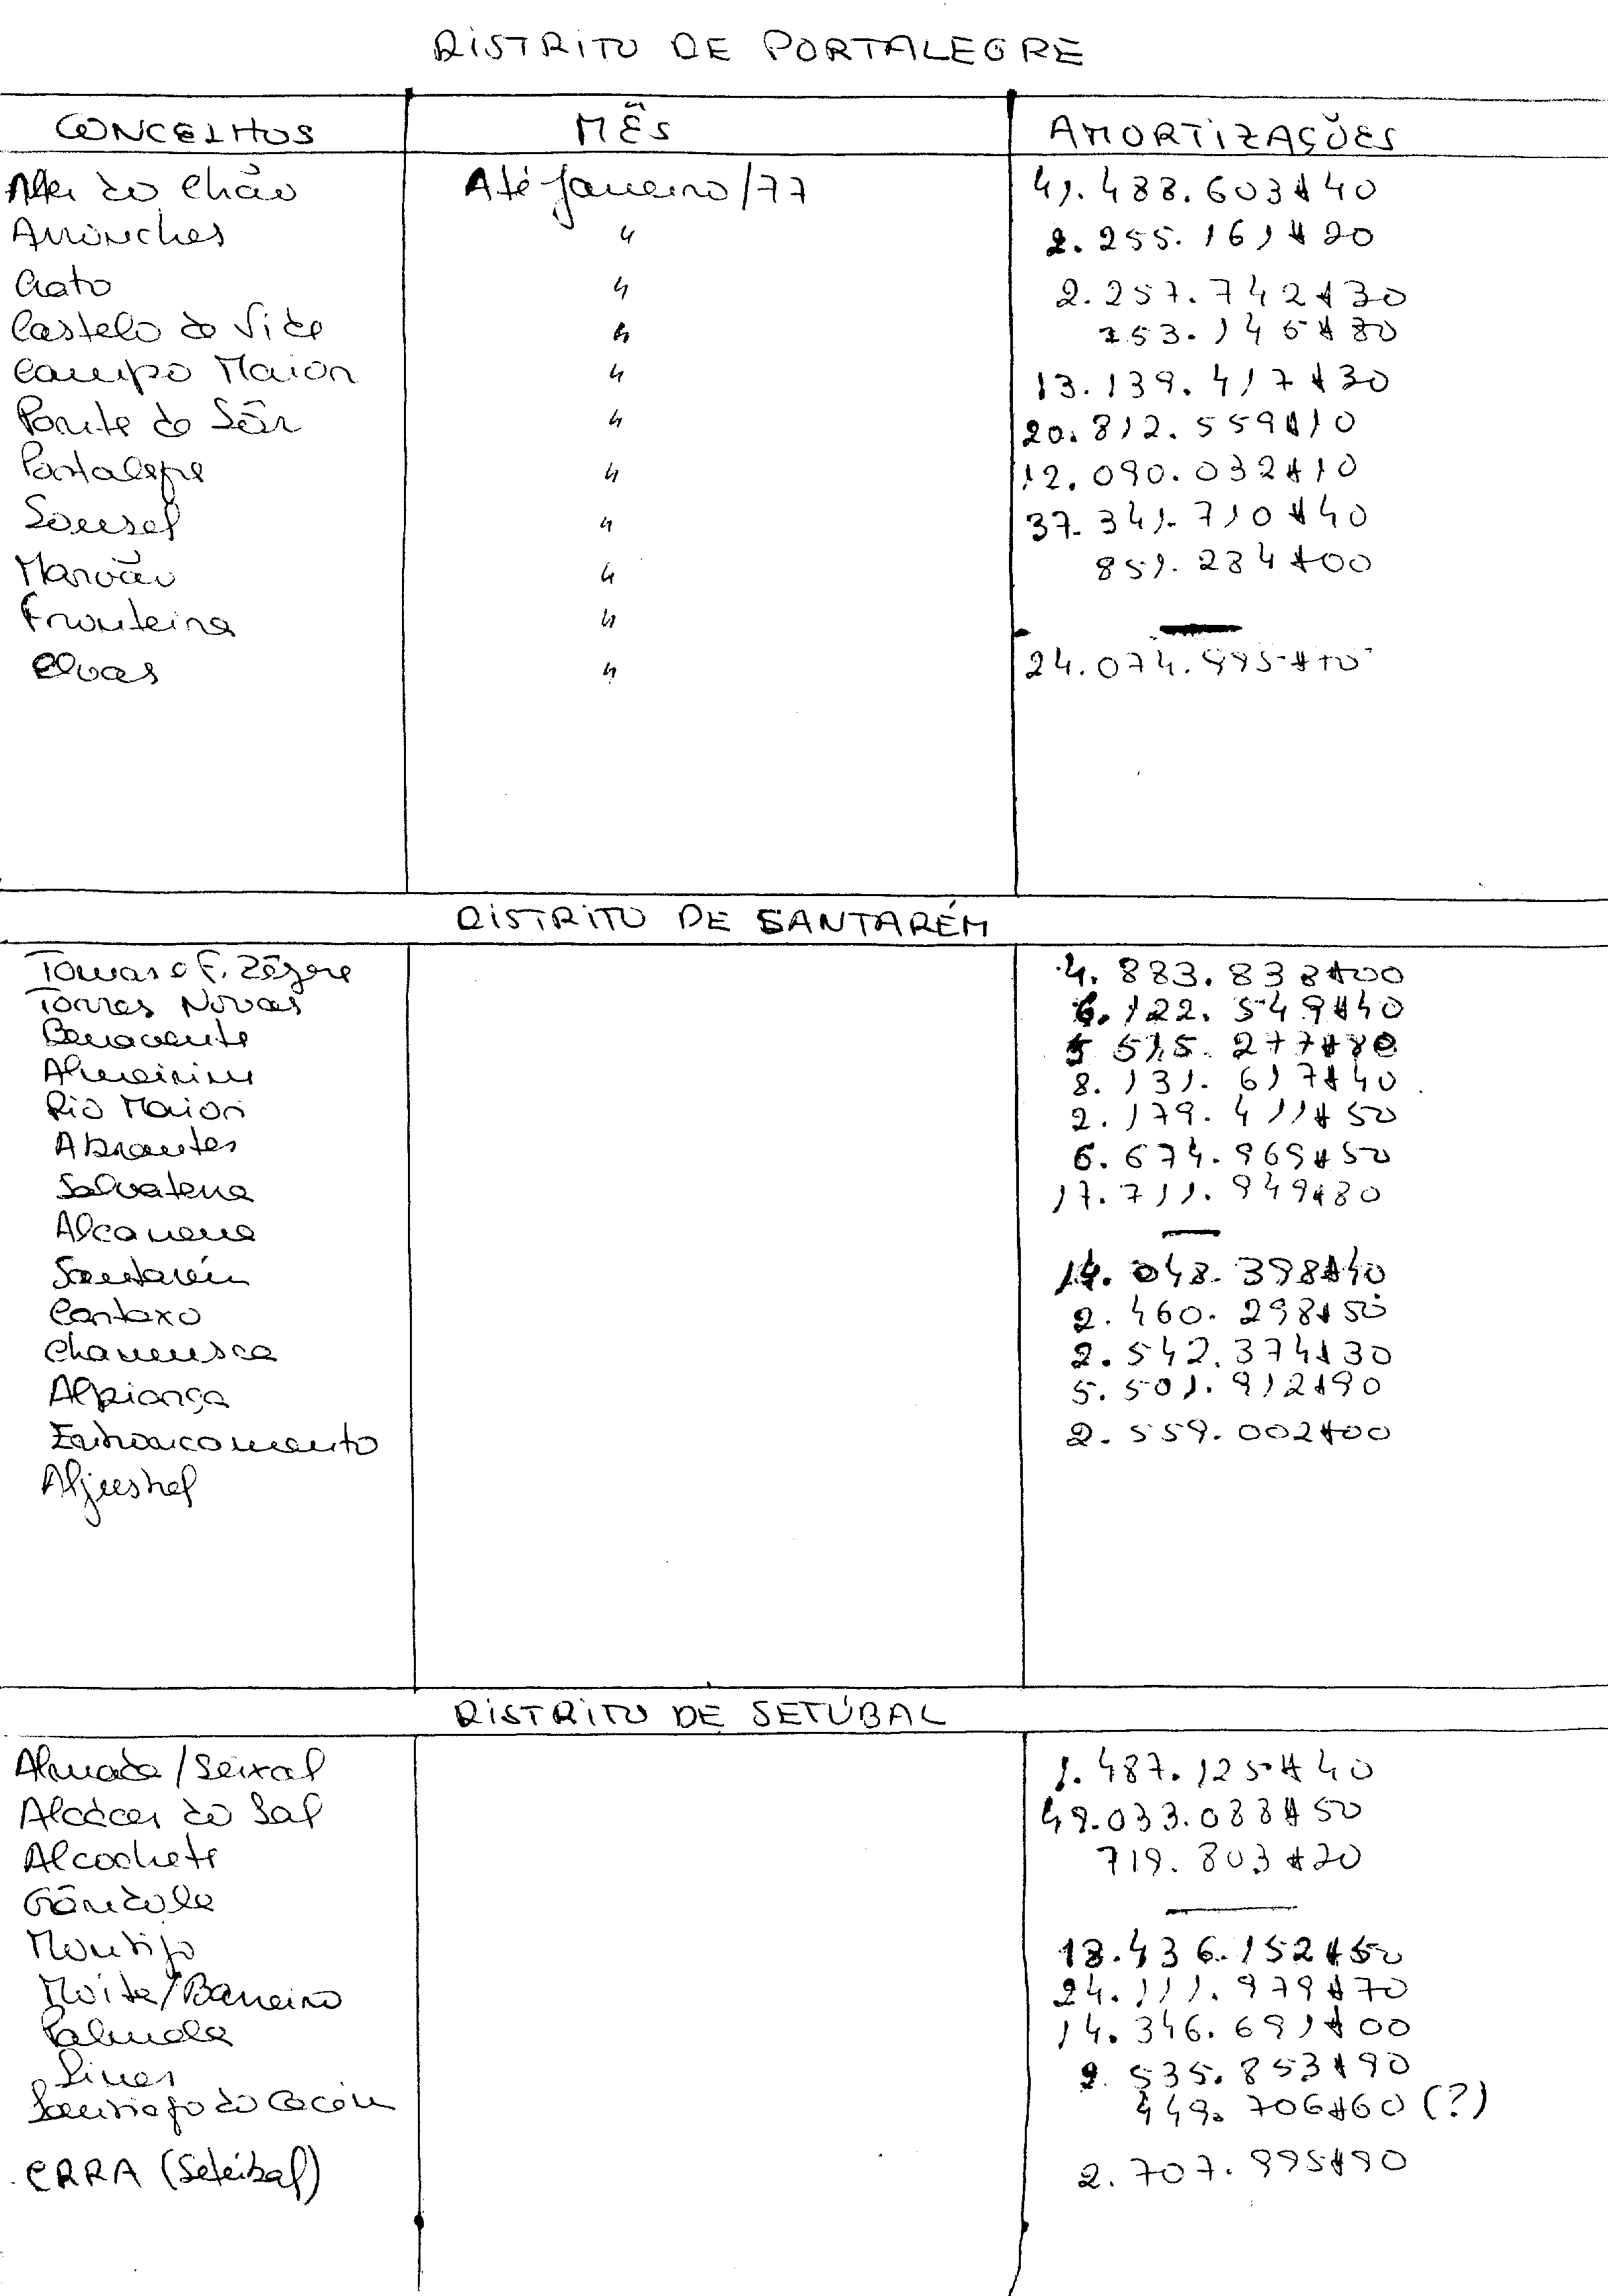 DISTRITO DE PORTALEGRE
CONCELHOS MÊS AMORTIZAÇÕES
Alter do Chão Até Janeiro/77 41.488.603$40
Arronches " 2.255.161$20
Crato " 2.257.742$30
Castelo de Vide " 753.146$80
Campo Maior " 13.139.417$30
Ponte de Sôr " 20.812.559$10
Portalegre " 12.090.032$10
Sousel " 37.341.710$40
Marvão " 851.284$00
Fronteira " —
Elvas " 24.074.995$10
DISTRITO DE SANTARÉM
Tomar e F. Zêzere 4.883.838$00
Torres Novas 6.122.549$40
Benavente 5 515.277$80
Almeirim 8.131.617$40
Rio Maior 2.179.411$50
Abrantes 6.674.969$50
Salvaterra 17.711.949$80
Alcanena —
Santarém 14.048.398$40
Cartaxo 2.460.298$50
Chamusca 2.542.374$30
Alpiarça 5.501.912$90
Entroncamento 2.559.002$00
Aljustrel
DISTRITO DE SETÚBAL
Almada/Seixal 1.487.125$40
Alcácer do Sal 49.033.088$50
Alcochete 719.803$20
Grândola —
Montijo 18.436.152$50
Moita/Barreiro 24.111.979$70
Palmela 14.346.691$00
Sines 2.535.853$90
Santiago do Cacém 449.706$60 (?)
CRRA (Setúbal) 2.707.995$90